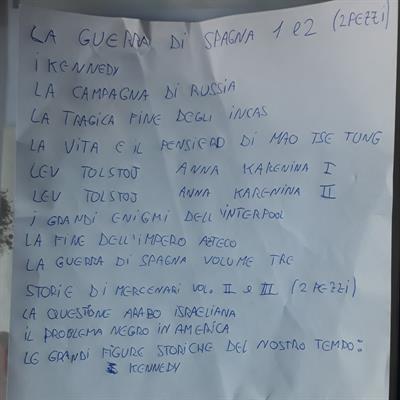 LA GUERRA DI SPAGNA 1 e 2 (2 PEZZI)
I KENNEDY
LA CAMPAGNA DI RUSSIA
LA TRAGICA FINE DEGLI INCAS
LA VITA E IL PENSIERO DI MAO TSE TUNG
LEV TOLSTOJ ANNA KARENINA I
LEV TOLSTOJ ANNA KARENINA II
I GRANDI ENIGMI DELL'INTERPOOL
LA FINE DELL'IMPERO AZTECO
LA GUERRA DI SPAGNA VOLUME TRE
STORIE DI MERCENARI VOL. II e III (2 PEZZI)
LA QUESTIONE ARABO ISRAELIANA
IL PROBLEMA NEGRO IN AMERICA
LE GRANDI FIGURE STORICHE DEL NOSTRO TEMPO:
I KENNEDY